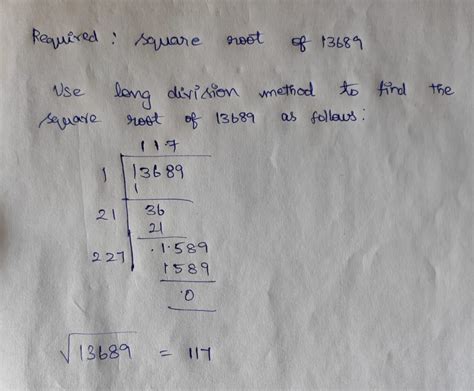 Required : square root of 13689
Use long division method to find the
square root of 13689 as follows:
117
1 13689
1
21 36
21
227 1589
1589
0
√13689 = 117